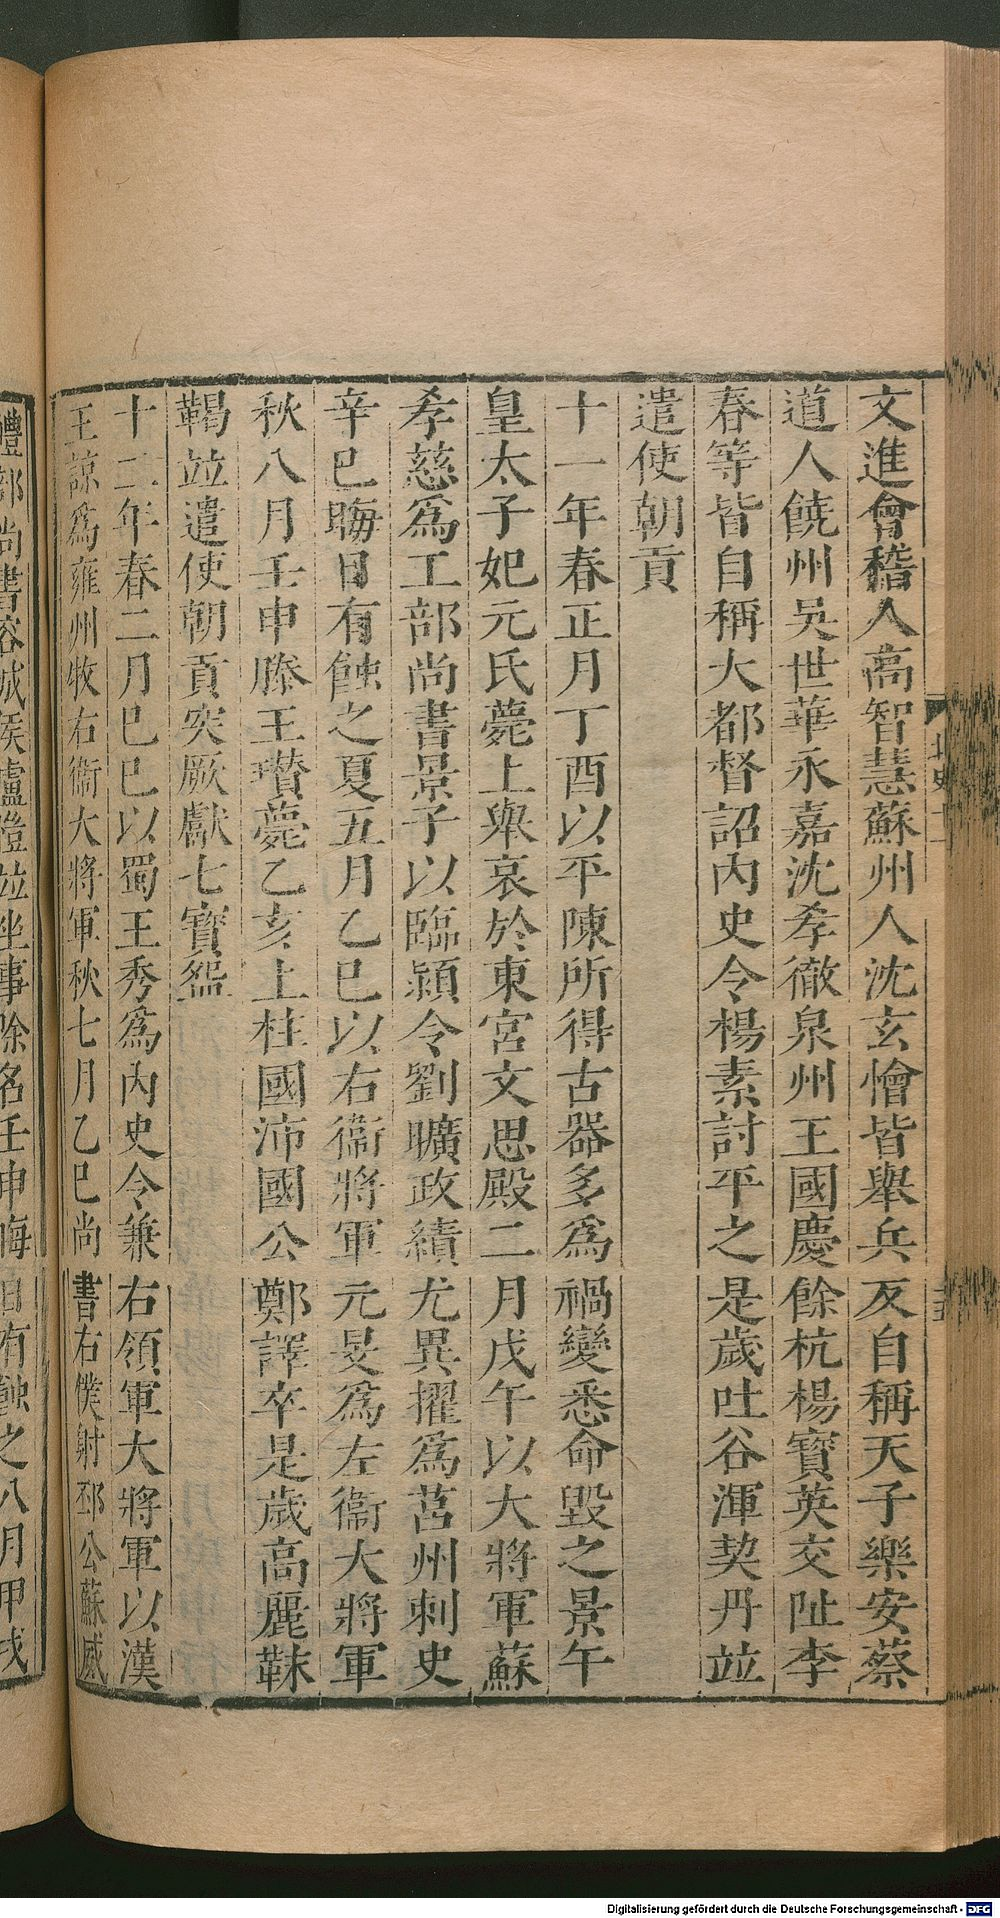 文進會稽人高智慧蘇州人沈玄懀皆舉兵反自稱天子樂安蔡
道人饒州吳世華永嘉沈孝徹泉州王國慶餘杭楊寶英交阯李
春等皆自稱大都督詔內史令楊素討平之是歲吐谷渾契丹竝
遣使朝貢
十一年春正月丁酉以平陳所得古器多爲禍變悉命毀之景午
皇太子妃元氏薨上舉哀於東宮文思殿二月戊午以大將軍蘇
孝慈爲工部尚書景子以臨潁令劉曠政績尤異擢爲莒州刺史
辛巳晦日有蝕之夏五月乙巳以右衞將軍元旻爲左衞大將軍
秋八月壬申滕王瓚薨乙亥上柱國沛國公鄭譯卒是歲高麗靺
鞨竝遣使朝貢突厥獻七寶盌
十二年春二月己巳以蜀王秀爲內史令兼右領軍大將軍以漢
王諒爲雍州牧右衞大將軍秋七月乙巳尚書右僕射邳公蘇威
禮部尚書容城侯盧愷竝坐事除名壬申晦日有蝕之八月甲戌
Digitalisierung gefördert durch die Deutsche Forschungsgemeinschaft - DFG